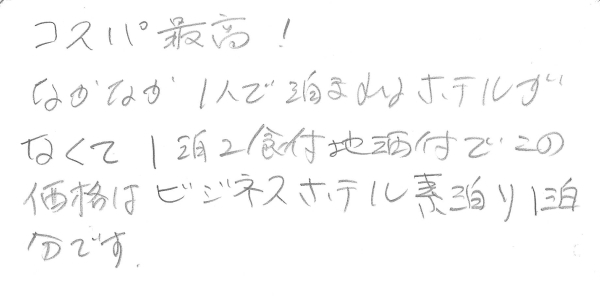 コスパ最高！
なかなか1人で泊まれるホテルが
なくて1泊2食付地酒付でこの
価格はビジネスホテル素泊り1泊
分です.